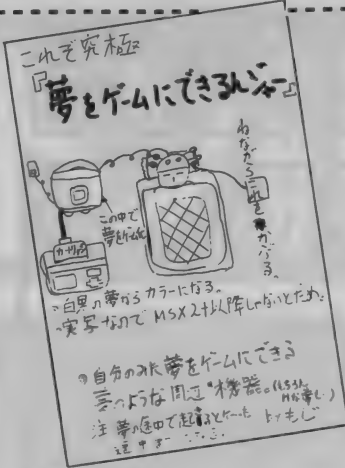 これぞ究極
『夢をゲームにできるんジャー』
ねながらこれをかぶる。
この中で
夢をゲーム化
カートリッジ
・白黒の夢からカラーになる。
・実写なのでMSX2+以降じゃないとだめ。
・自分のみた夢をゲームにできる
夢のような周辺機器。(もちろん
Hな夢も)
注 夢の途中で起きるとゲームも
途中